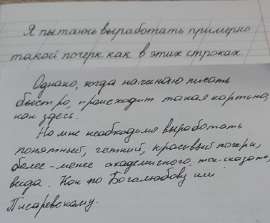 Я пытаюсь выработать примерно
такой почерк как в этих строках.
Однако, когда начинаю писать
быстро, происходит такая картина,
как здесь.
Но мне необходимо выработать
понятный, чёткий, красивый почерк,
более-менее академичного, так сказать,
вида. Как по Боголюбову или
Писаревскому.